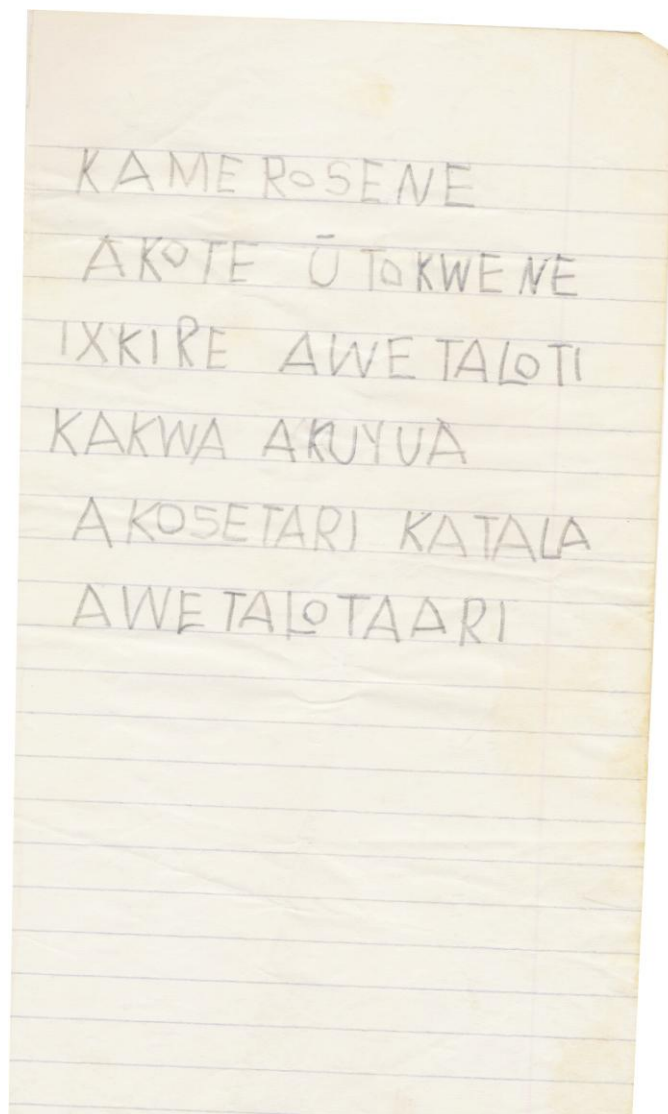 KAMEROSENE
AKOTE ŪTOKWENE
IXKIRE AWETALOTI
KAKWA AKUYUA
AKOSETARI KATALA
AWETALOTAARI